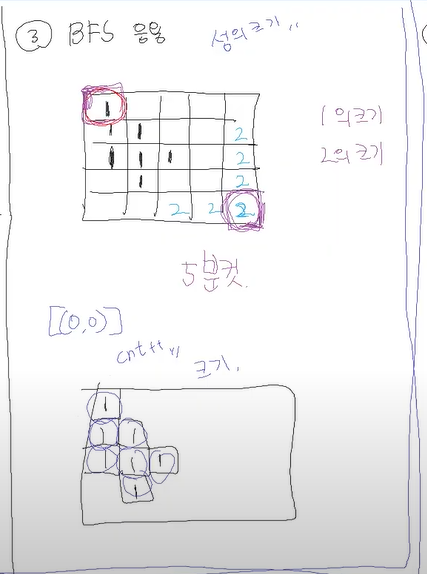 ③ BFS 응용 섬의크기
1
1 1 2
1 1 1 2
1 2
2 2 2
1의크기
2의크기
5분컷.
[(0,0)]
cnt++
크기.
1
1 1
1 1 1
1